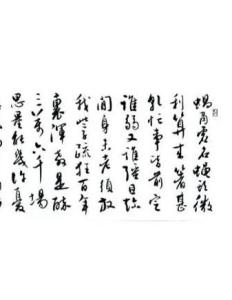 蝸角虛名蠅頭微
利算来著甚
乾忙事皆前定
誰弱又誰强且趁
閒身未老須放
我些子疏狂百年
裏渾教是醉
三萬六千場
思量能幾許憂